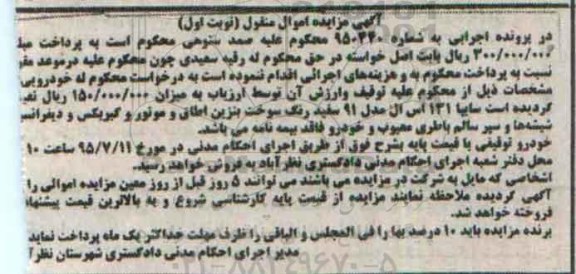 آگهی مزایده اموال منقول (نوبت اول)
در پرونده اجرایی به شماره ۹۵۰۳۴۰ محکوم علیه صمد ستوهی محکوم است به پرداخت مبلغ
۳۰۰/۰۰۰/۰۰۰ ریال بابت اصل خواسته در حق محکوم له رقیه سعیدی چون محکوم علیه درموعد مقرر
نسبت به پرداخت محکوم به و هزینه‌های اجرائی اقدام ننموده است به درخواست محکوم له خودرویی
مشخصات ذیل از محکوم علیه توقیف وارزش آن توسط ارزیاب به میزان ۱۵۰/۰۰۰/۰۰۰ ریال
گردیده است سایپا ۱۳۱ اس ال مدل ۹۱ سفید رنگ سوخت بنزین اطاق و موتور و گیربکس و دیفرانسیل
شیشه‌ها و سپر سالم باطری معیوب و خودرو فاقد بیمه نامه می باشد.
خودرو توقیفی با قیمت پایه بشرح فوق از طریق اجرای احکام مدنی در مورخ ۹۵/۷/۱۱ ساعت ۱۰
محل دفتر شعبه اجرای احکام مدنی دادگستری نظرآباد به فروش خواهد رسید.
اشخاصی که مایل به شرکت در مزایده می باشند می توانند ۵ روز قبل از روز معین مزایده اموالی را
آگهی گردیده ملاحظه نمایند مزایده از قیمت پایه کارشناسی شروع و به بالاترین قیمت پیشنهادی
فروخته خواهد شد.
برنده مزایده باید ۱۰ درصد بها را فی المجلس و الباقی را ظرف مهلت حداکثر یک ماه پرداخت نماید
مدیر اجرای احکام مدنی دادگستری شهرستان نظرآباد
۰۲۱-۸۸۳۴۹۶۷۰-۵